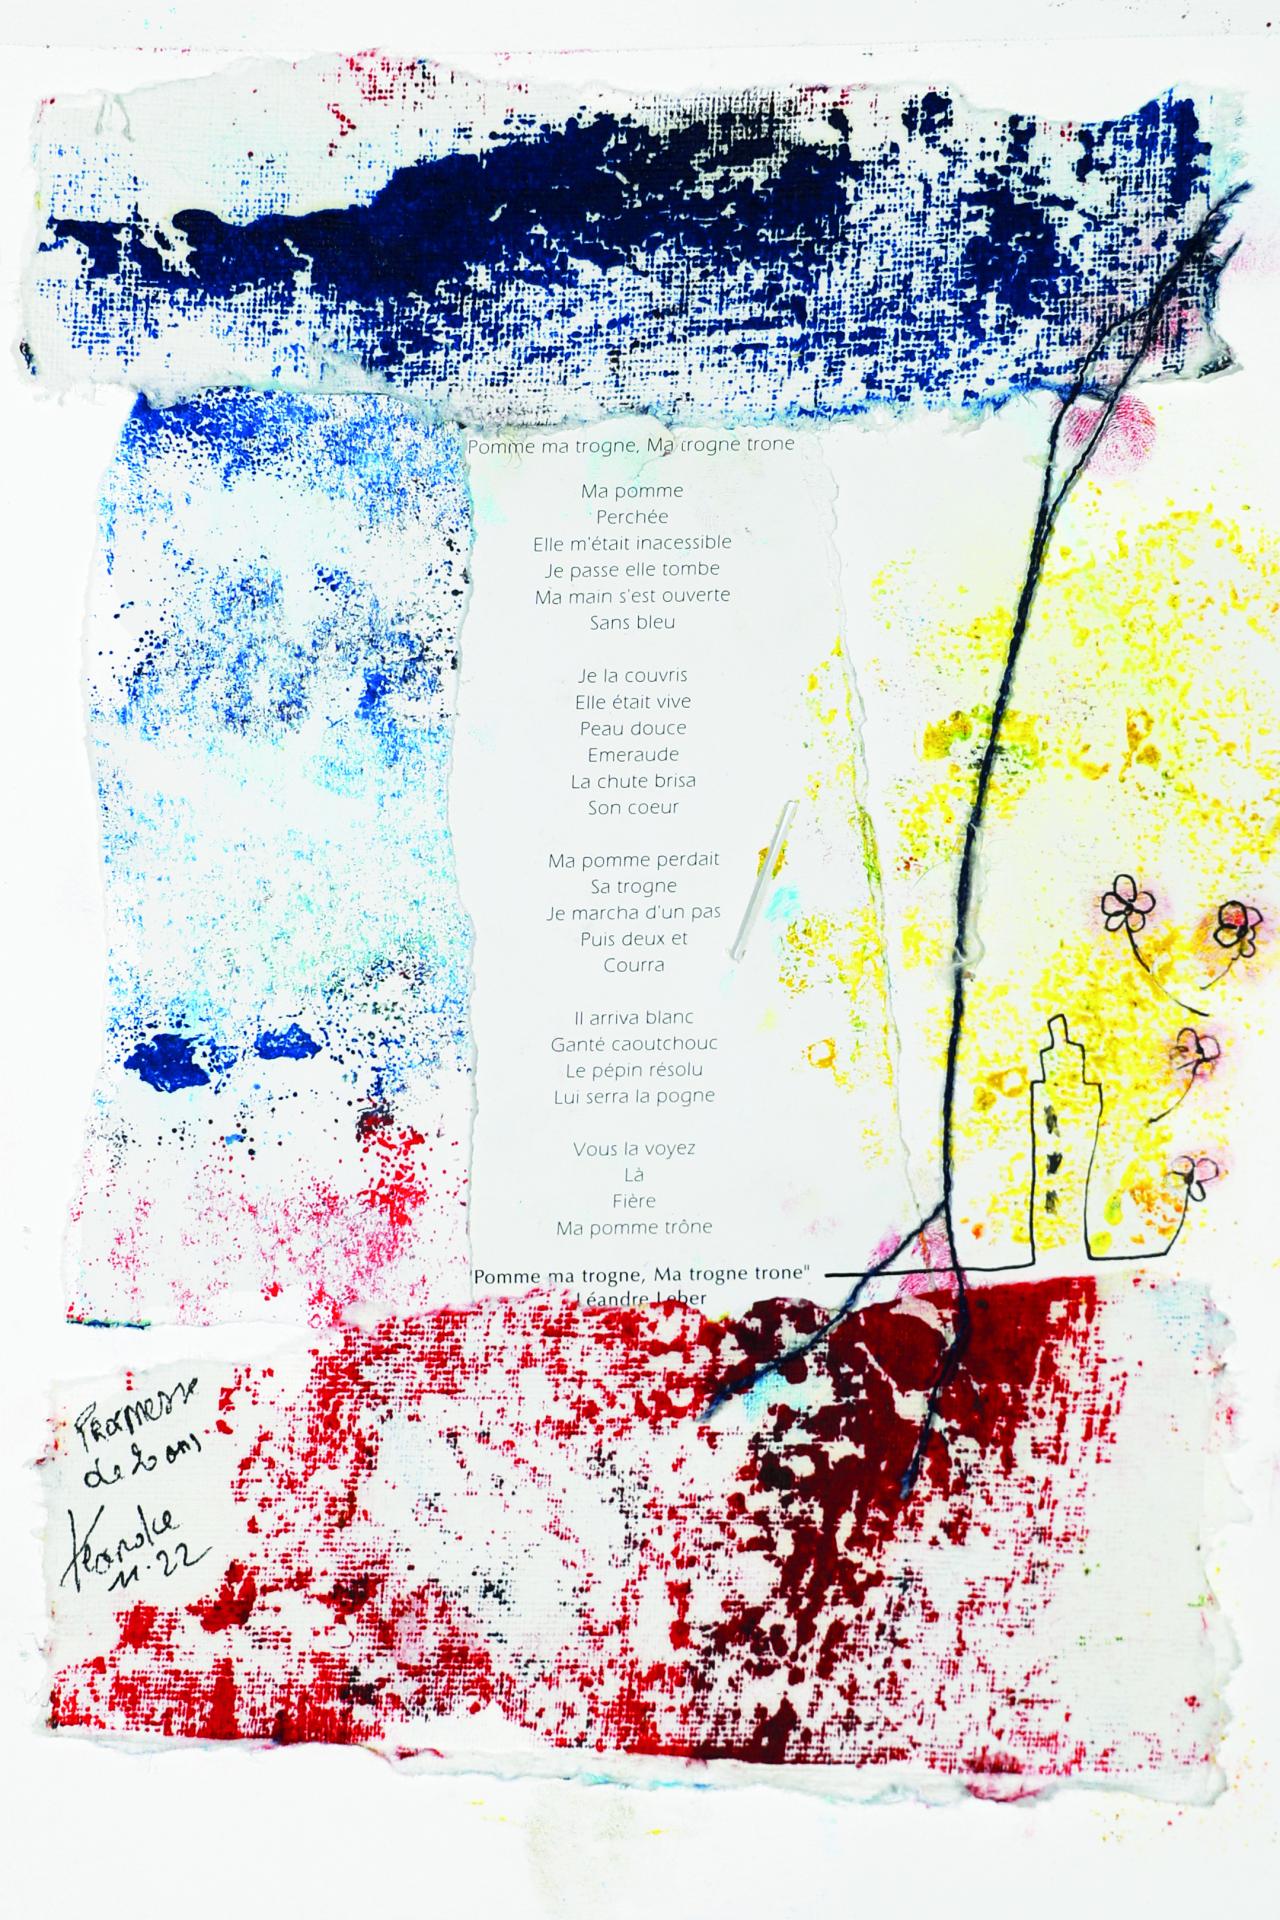 Pomme ma trogne, Ma trogne trone
Ma pomme
Perchée
Elle m'était inacessible
Je passe elle tombe
Ma main s'est ouverte
Sans bleu
Je la couvris
Elle était vive
Peau douce
Emeraude
La chute brisa
Son coeur
Ma pomme perdait
Sa trogne
Je marcha d'un pas
Puis deux et
Courra
Il arriva blanc
Ganté caoutchouc
Le pépin résolu
Lui serra la pogne
Vous la voyez
Là
Fière
Ma pomme trône
Pomme ma trogne, Ma trogne trone"
Léandre Leber
Promesse
de 20 ans
11.22